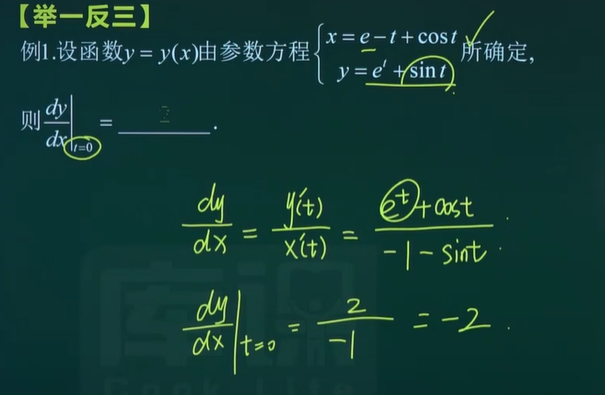 【举一反三】
例1.设函数y = y(x)由参数方程{x = e − t + cos t, y = e^t + sin t 所确定,
则 dy/dx|t=0 = ______.
2
dy/dx = y'(t)/x'(t) = (e^t + cost)/(-1 - sint).
dy/dx|t=0 = 2/-1 = -2.
库课
Cook Life